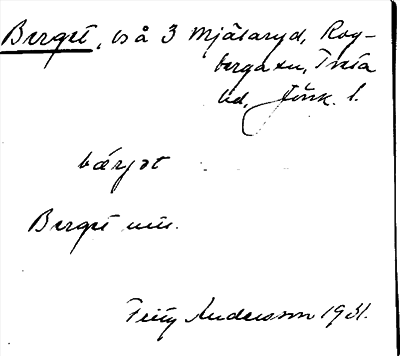 Berget, is å 3 Mjälaryd, Rog-
berga sn, Tveta
hd, Jönk. l.
bærjət
Berget mm.
Fritz Andersson 1931.